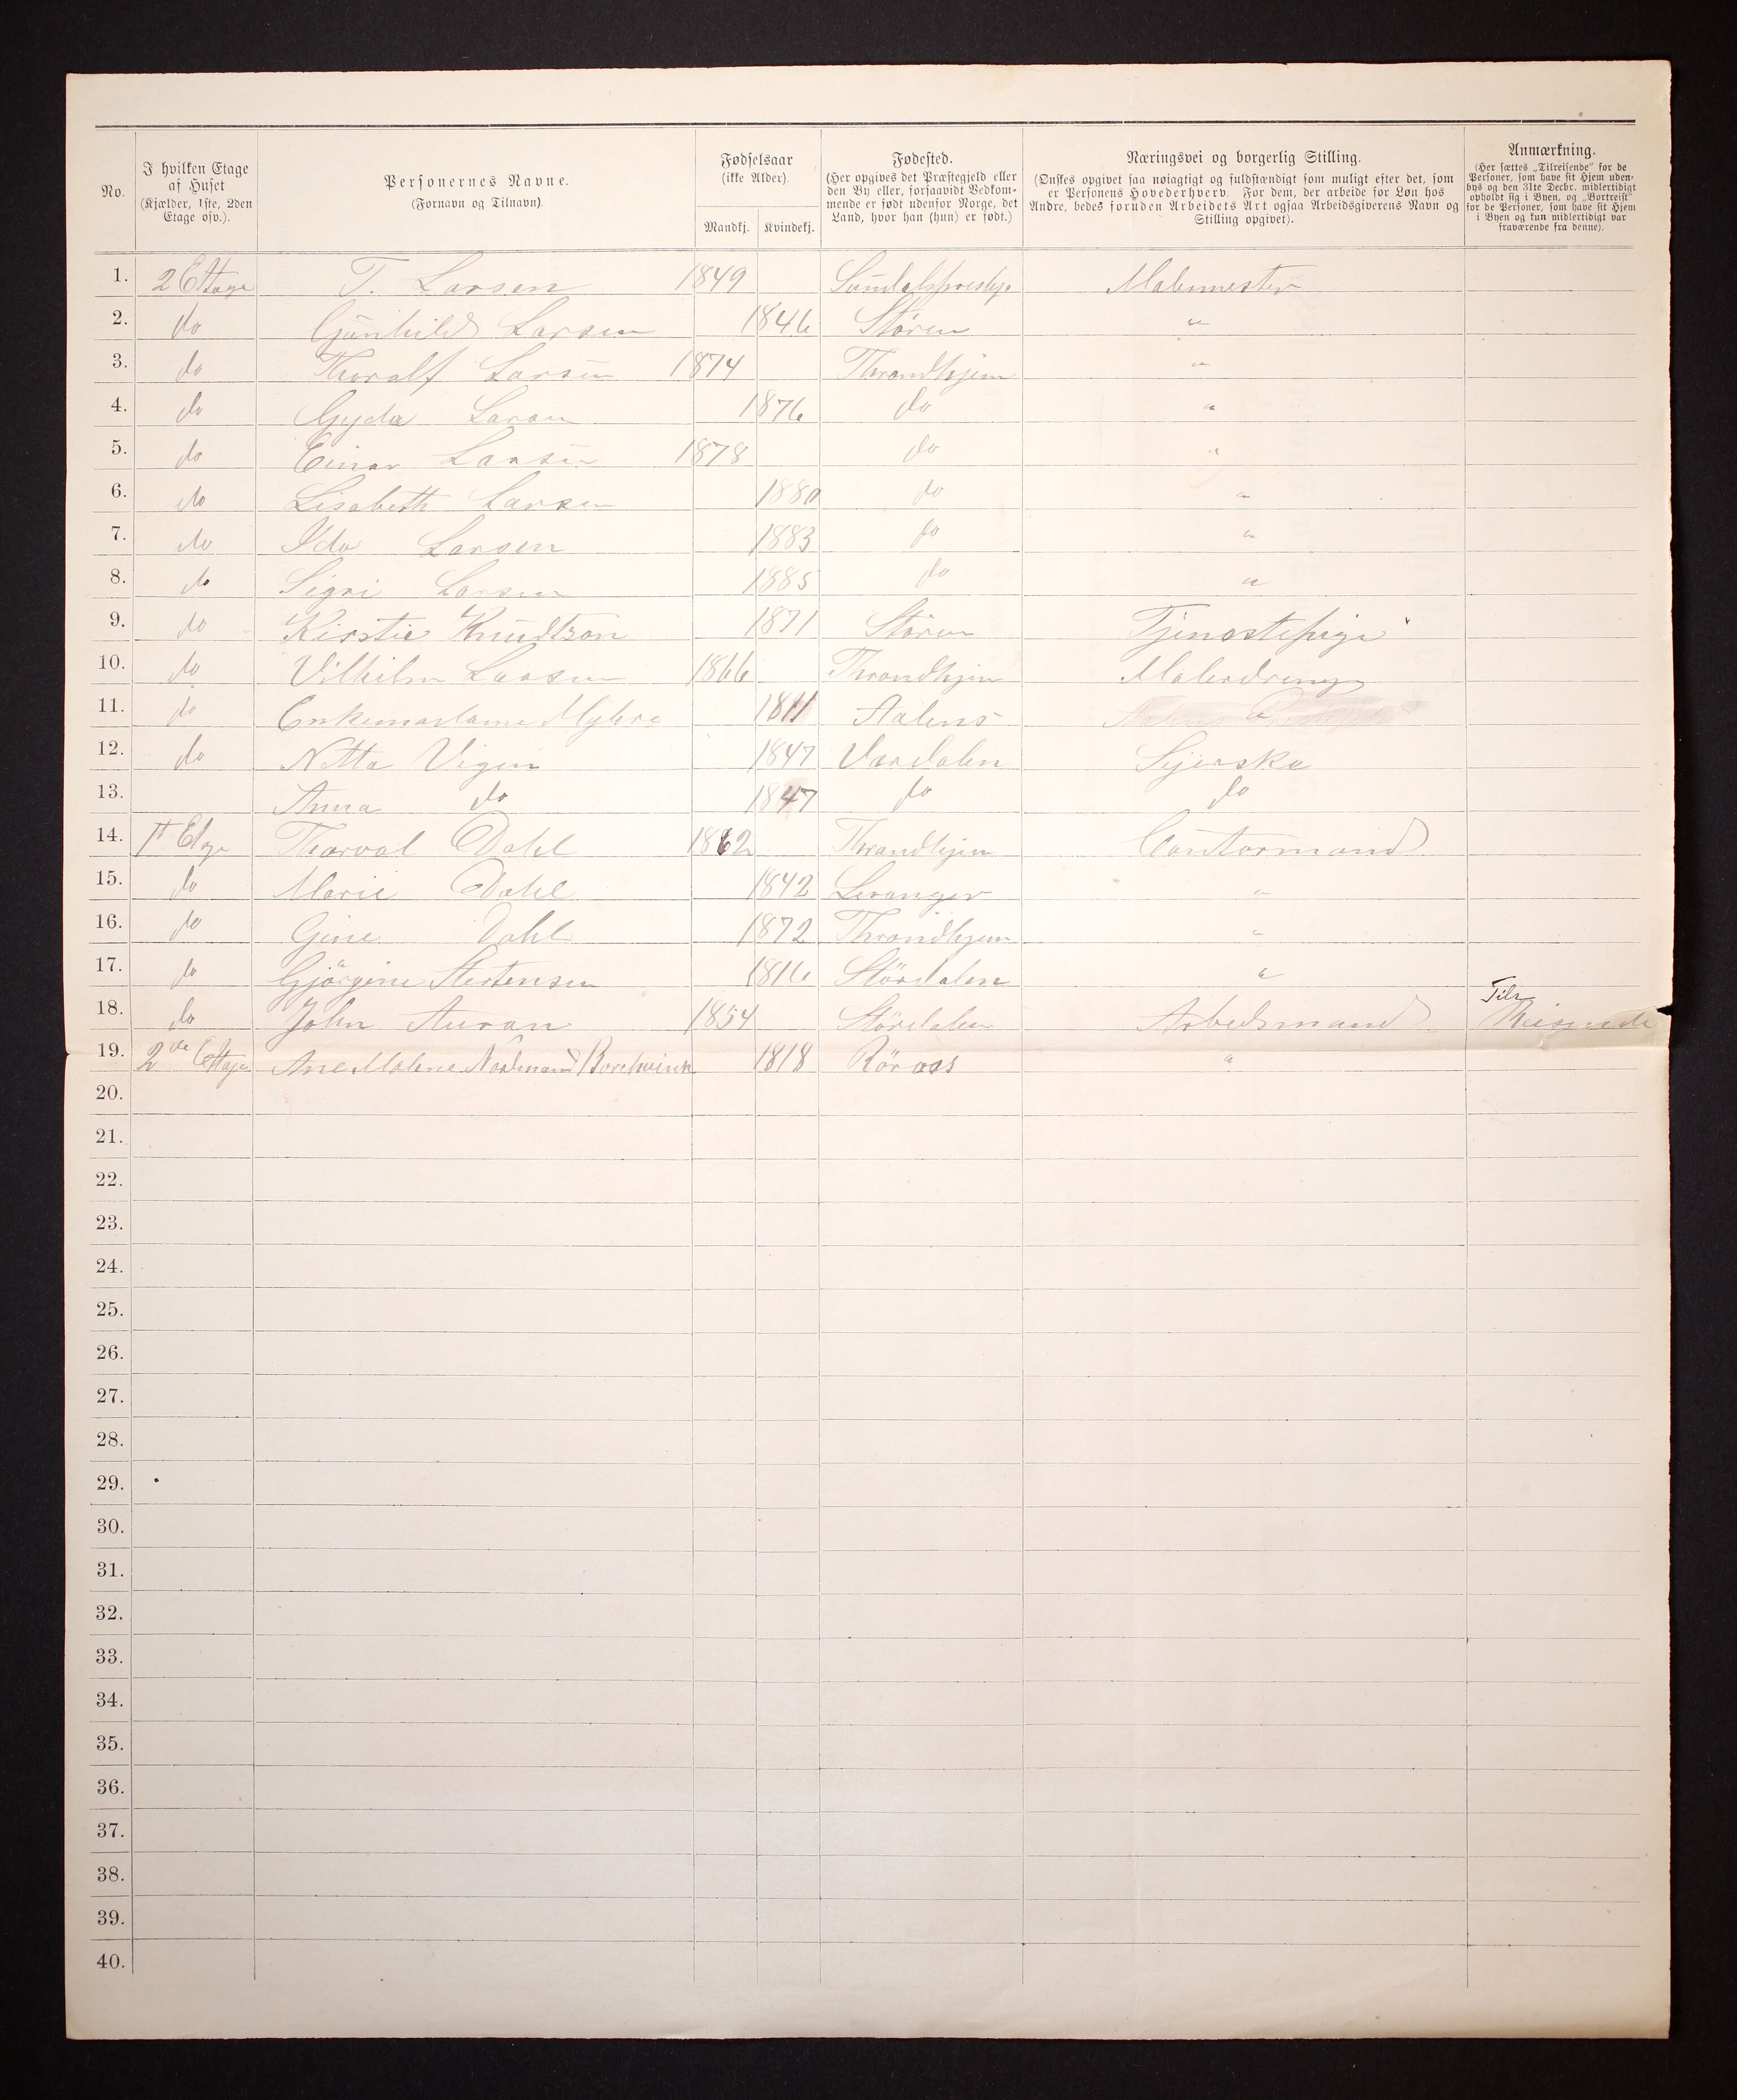 No.
I hvilken Etage
af Huset
(Kjælder, 1ste, 2den
Etage osv.).
Personernes Navne.
(Fornavn og Tilnavn).
Fødselsaar
(ikke Alder).
Mandkj. Kvindekj.
Fødested.
(Her opgives det Præstegjeld eller
den By eller, forsaavidt Vedkom-
mende er født udenfor Norge, det
Land, hvor han (hun) er født.)
Næringsvei og borgerlig Stilling.
(Ønskes opgivet saa nøiagtigt og fuldstændigt som muligt efter det, som
er Personens Hovederhverv. For dem, der arbeide for Løn hos
Andre, bedes foruden Arbeidets Art ogsaa Arbeidsgiverens Navn og
Stilling opgivet).
Anmærkning.
(Her sættes „Tilreisende“ for de
Personer, som have sit Hjem uden-
bys og den 31te Decbr. midlertidigt
opholdt sig i Byen, og „Bortreist“
for de Personer, som have sit Hjem
i Byen og kun midlertidigt var
fraværende fra denne).
1. 2 Ettage T. Larsen 1849 Malermester
2. do Gunhild Larsen 1846 Støren "
3. do Thoralf Larsen 1874 Throndhjem "
4. do Gyda Larsen 1876 do "
5. do Einar Larsen 1878 do "
6. do Lisabeth Larsen 1880 do "
7. do Ida Larsen 1883 do "
8. do Sigri Larsen 1885 do "
9. do Kirstie Knudtson 1871 Støren Tjenestepige
10. do Vilhelm Larsen 1866 Throndhjem Malerdreng
11. do Enkemadame Myhre 1811 Aalens
12. do Netta Vigen 1847 Værdalen Sijerske
13. Anna do 1847 do do
14. 1st Etage Thorval Dahl 1862 Throndhjem Contormand
15. do Marie Dahl 1842 Levanger "
16. do Gine Dahl 1872 Throndhjem "
17. do Gjörgine Stertensen 1816 Stördalen "
18. do John Auran 1854 Stördalen Arbedsmand Tilr Reisende
19. 2de Ettage Ane Malene Nordmand Borchvinck 1818 Röraas "
20.
21.
22.
23.
24.
25.
26.
27.
28.
29.
30.
31.
32.
33.
34.
35.
36.
37.
38.
39.
40.